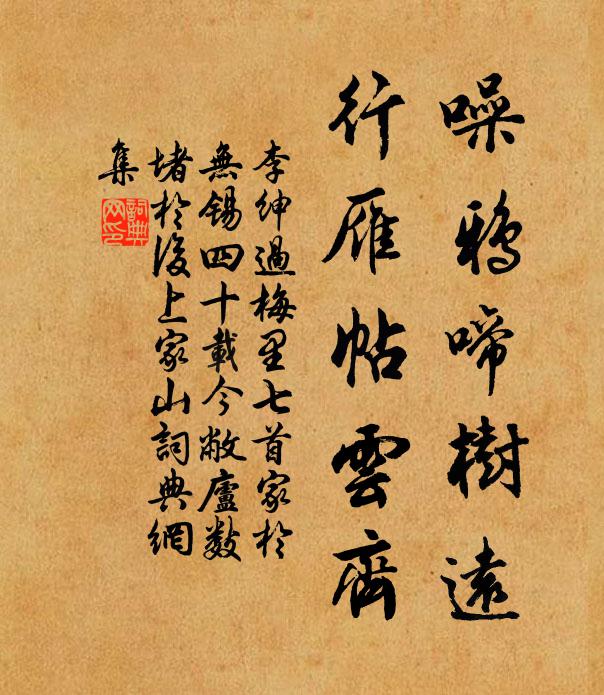 噪鴉啼樹遠
行雁帖雲齊
李紳過梅里七首家於
無錫四十載今敝廬數
堵於後上家山詞典網
集
詞典
网印